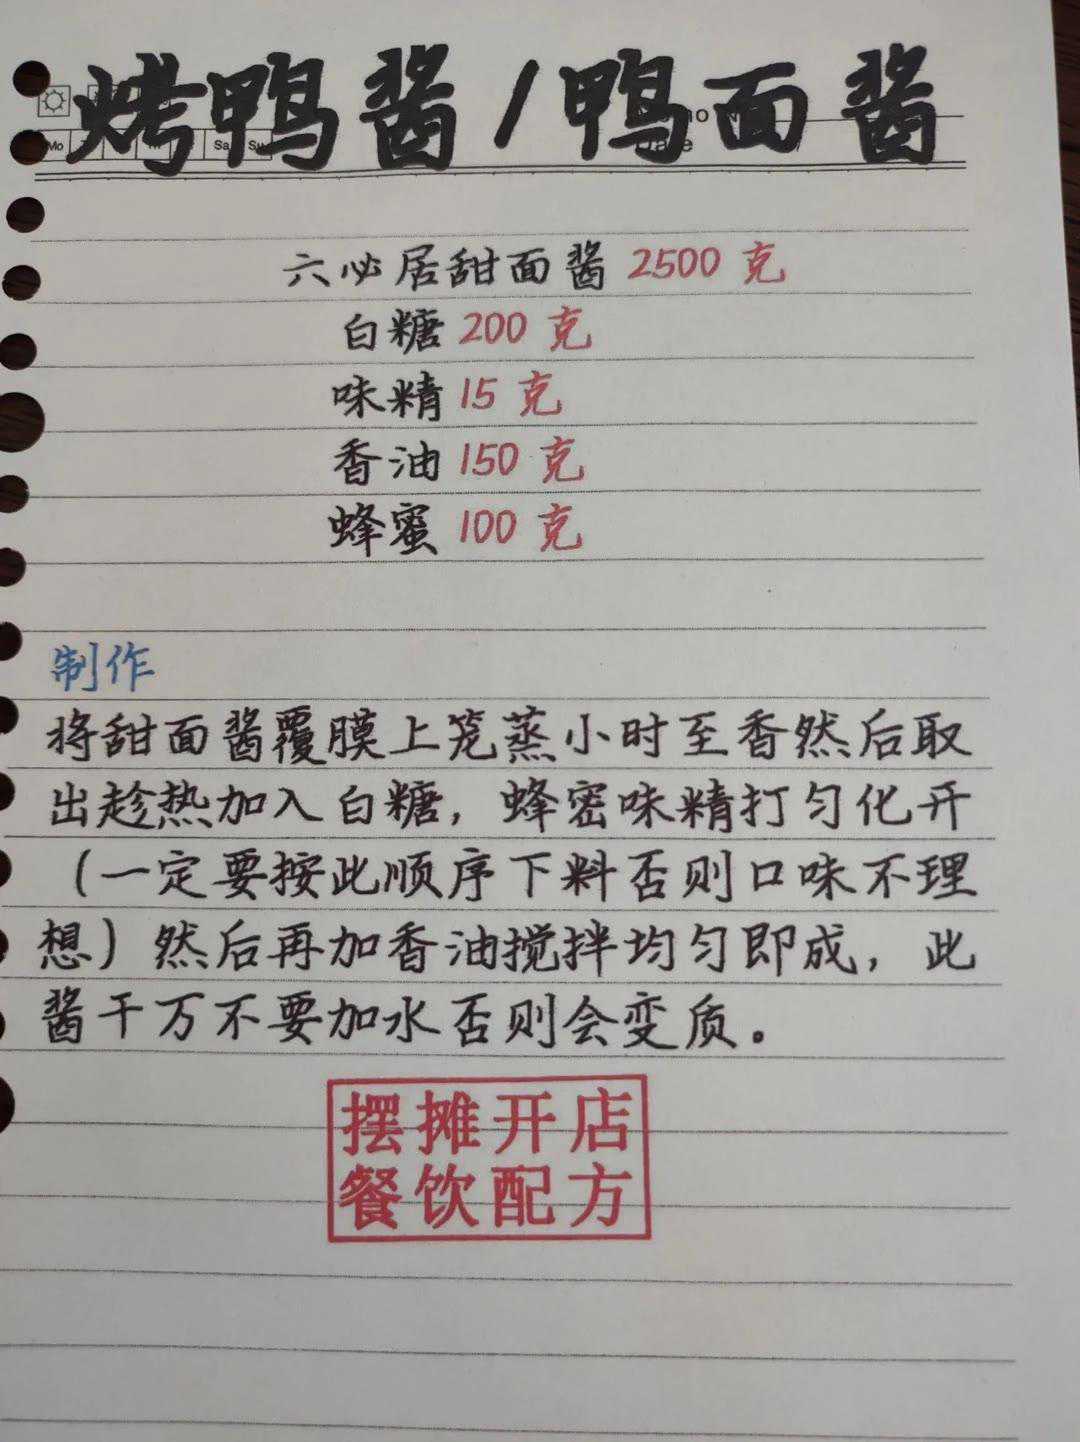 烤鸭酱/鸭面酱
六必居甜面酱 2500 克
白糖 200 克
味精 15 克
香油 150 克
蜂蜜 100 克
制作
将甜面酱覆膜上笼蒸小时至香然后取
出趁热加入白糖，蜂密味精打匀化开
（一定要按此顺序下料否则口味不理
想）然后再加香油搅拌均匀即成，此
酱千万不要加水否则会变质。
摆摊开店
餐饮配方